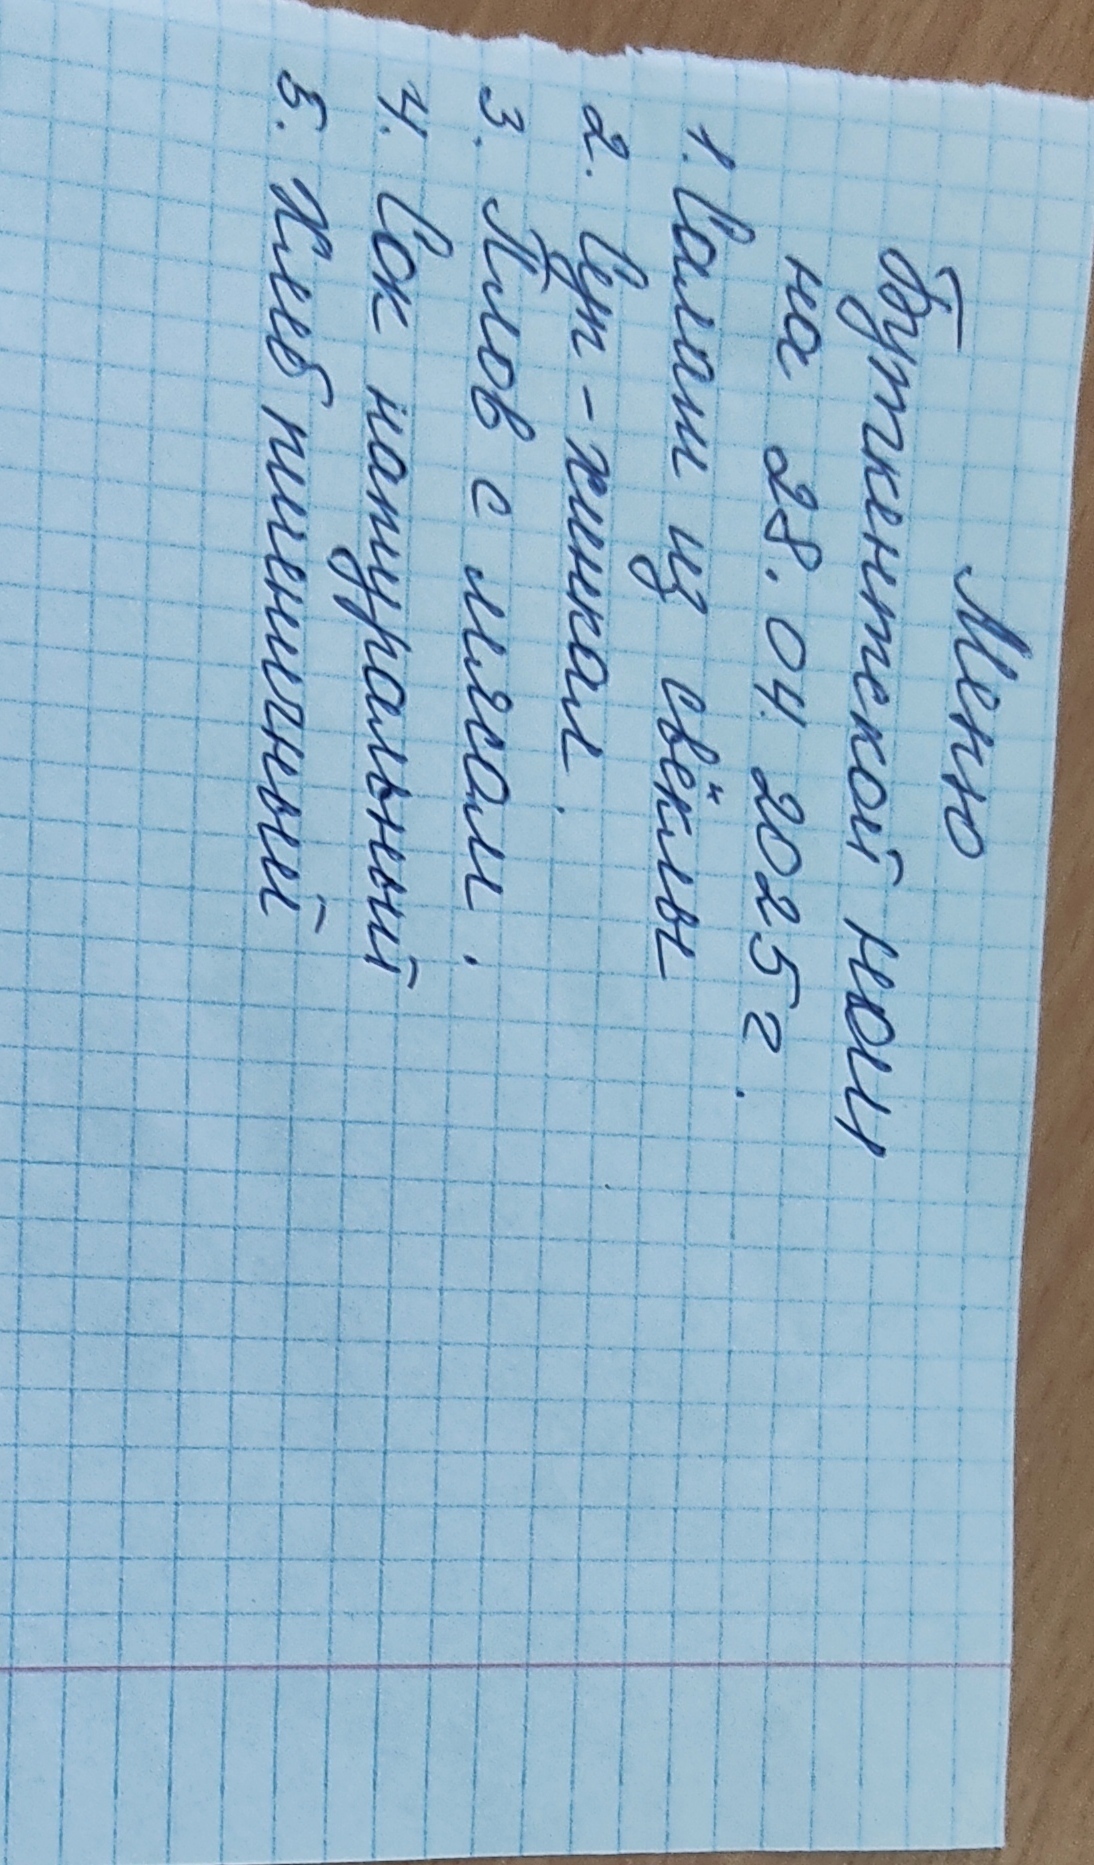 Меню
Буткентской нош
на 28.04 2025 г.
1. Салат из свёклы
2. Суп-хинкал.
3. Плов с мясом.
4. Сок натуральный
5. Хлеб пшеничный